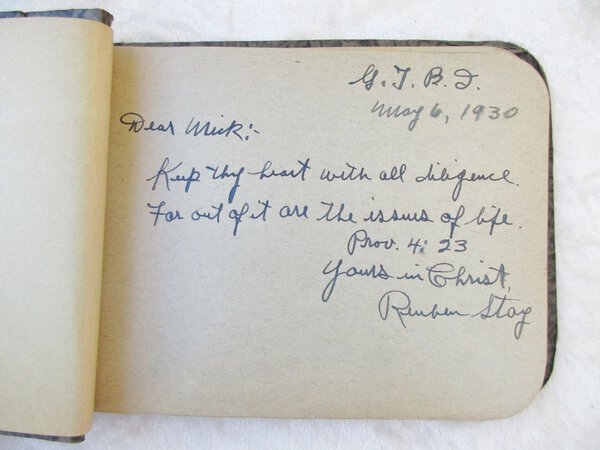 G. T. B. I.
May 6, 1930
Dear Mick:-
Keep thy heart with all diligence.
For out of it are the issues of life.
Prov. 4: 23
Yours in Christ,
Reuben Stoy